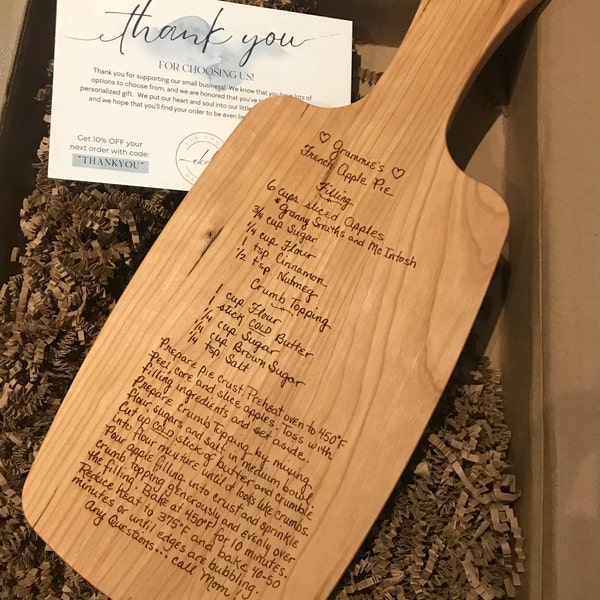 thank you
FOR CHOOSING US!
Thank you for supporting our small business! We know that you have lots of
options to choose from, and we are honored that you've
personalized gift. We put our heart and soul into our little
and we hope that you'll find your order to be even be
Get 10% OFF your
next order with code:
"THANKYOU"
♡ Grammie's ♡
French Apple Pie
Filling
6 cups sliced Apples
*Granny Smiths and McIntosh
3/4 cup Sugar
1/4 cup Flour
1 tsp Cinnamon
1/2 tsp. Nutmeg
Crumb Topping
1 cup Flour
1 stick COLD Butter
1/4 cup Sugar
1/4 cup Brown Sugar
1/4 tsp Salt
Prepare pie crust. Preheat oven to 450°F
Peel, core and slice apples. Toss with
filling ingredients and set aside.
Prepare Crumb Topping by mixing
flour, sugars and salt in medium bowl.
Cut up COLD stick of butter and crumble
into flour mixture until it looks like crumbs.
Pour apple filling into crust and sprinkle
crumb topping generously and evenly over
the filling. Bake at 450°F for 10 minutes.
Reduce heat to 375°F and bake 40-50
minutes or until edges are bubbling.
Any Questions... call Mom!